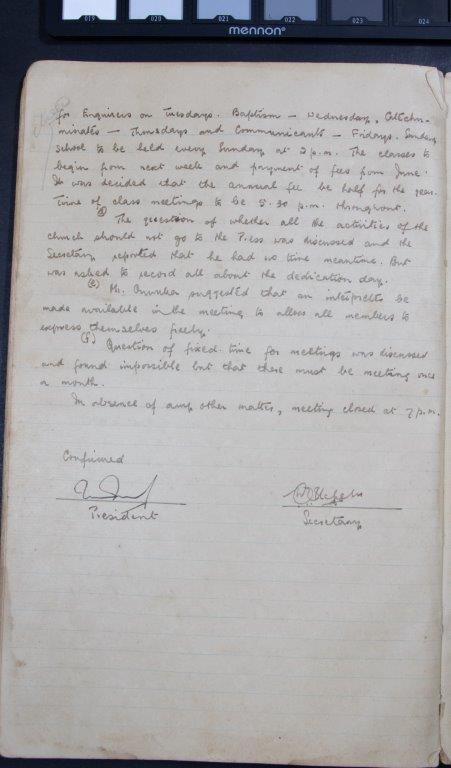 019 020 021 022 023 024
mennon
for Enquirers on Tuesdays. Baptism – Wednesday, Catechu-
minates – Thursdays and Communicants – Fridays. Sunday
School to be held every Sunday at 2 p.m. The classes to
begin from next week and payment of fees from June.
It was decided that the annual fee be half for the year.
Time of class meetings to be 5.30 p.m. throughout.
(d) The question of whether all the activities of the
church should not go to the Press was discussed and the
Secretary reported that he had no time meantime. But
was asked to record all about the dedication day.
(e) Mr. suggested that an interpreter be
made available in the meeting to allow all members to
express themselves freely.
(f) Question of fixed time for meetings was discussed
and found impossible but that there must be meeting once
a month.
In absence of any other matter, meeting closed at 7 p.m.
Confirmed
President
Secretary